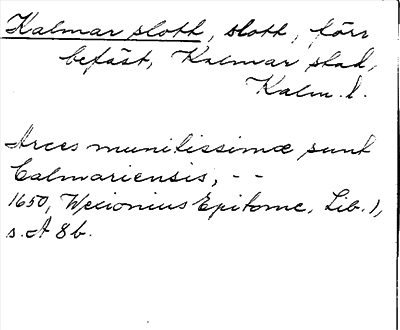 Kalmar slott, slott, förr
befäst, Kalmar stad,
Kalm. l.
Arces munitissimæ sunt
Calmariensis, - -
1650, Wexionius Epitome, Lib. 1,
s. A 8b.